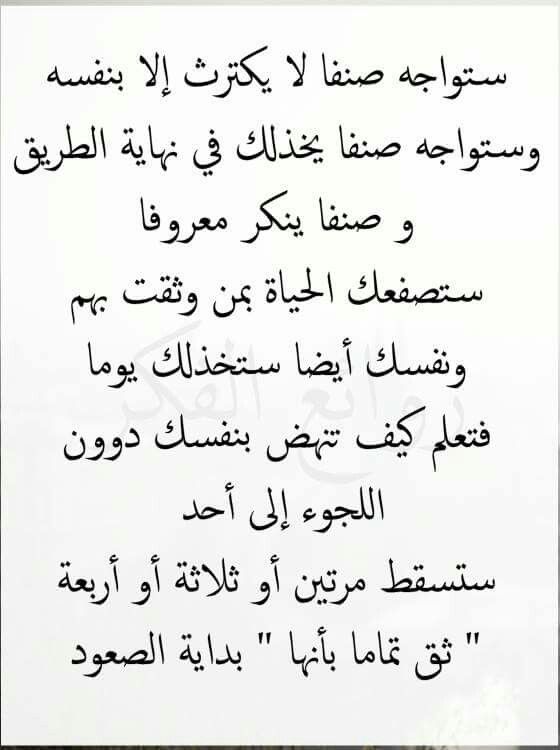 ستواجه صنفا لا يكترث إلا بنفسه
وستواجه صنفا يخذلك في نهاية الطريق
و صنفا ينكر معروفا
ستصفعك الحياة بمن وثقت بهم
ونفسك أيضا ستخذلك يوما
روائع الفكر
فتعلم كيف تنهض بنفسك دوون
اللجوء إلى أحد
ستسقط مرتين أو ثلاثة أو أربعة
" ثق تماما بأنها " بداية الصعود